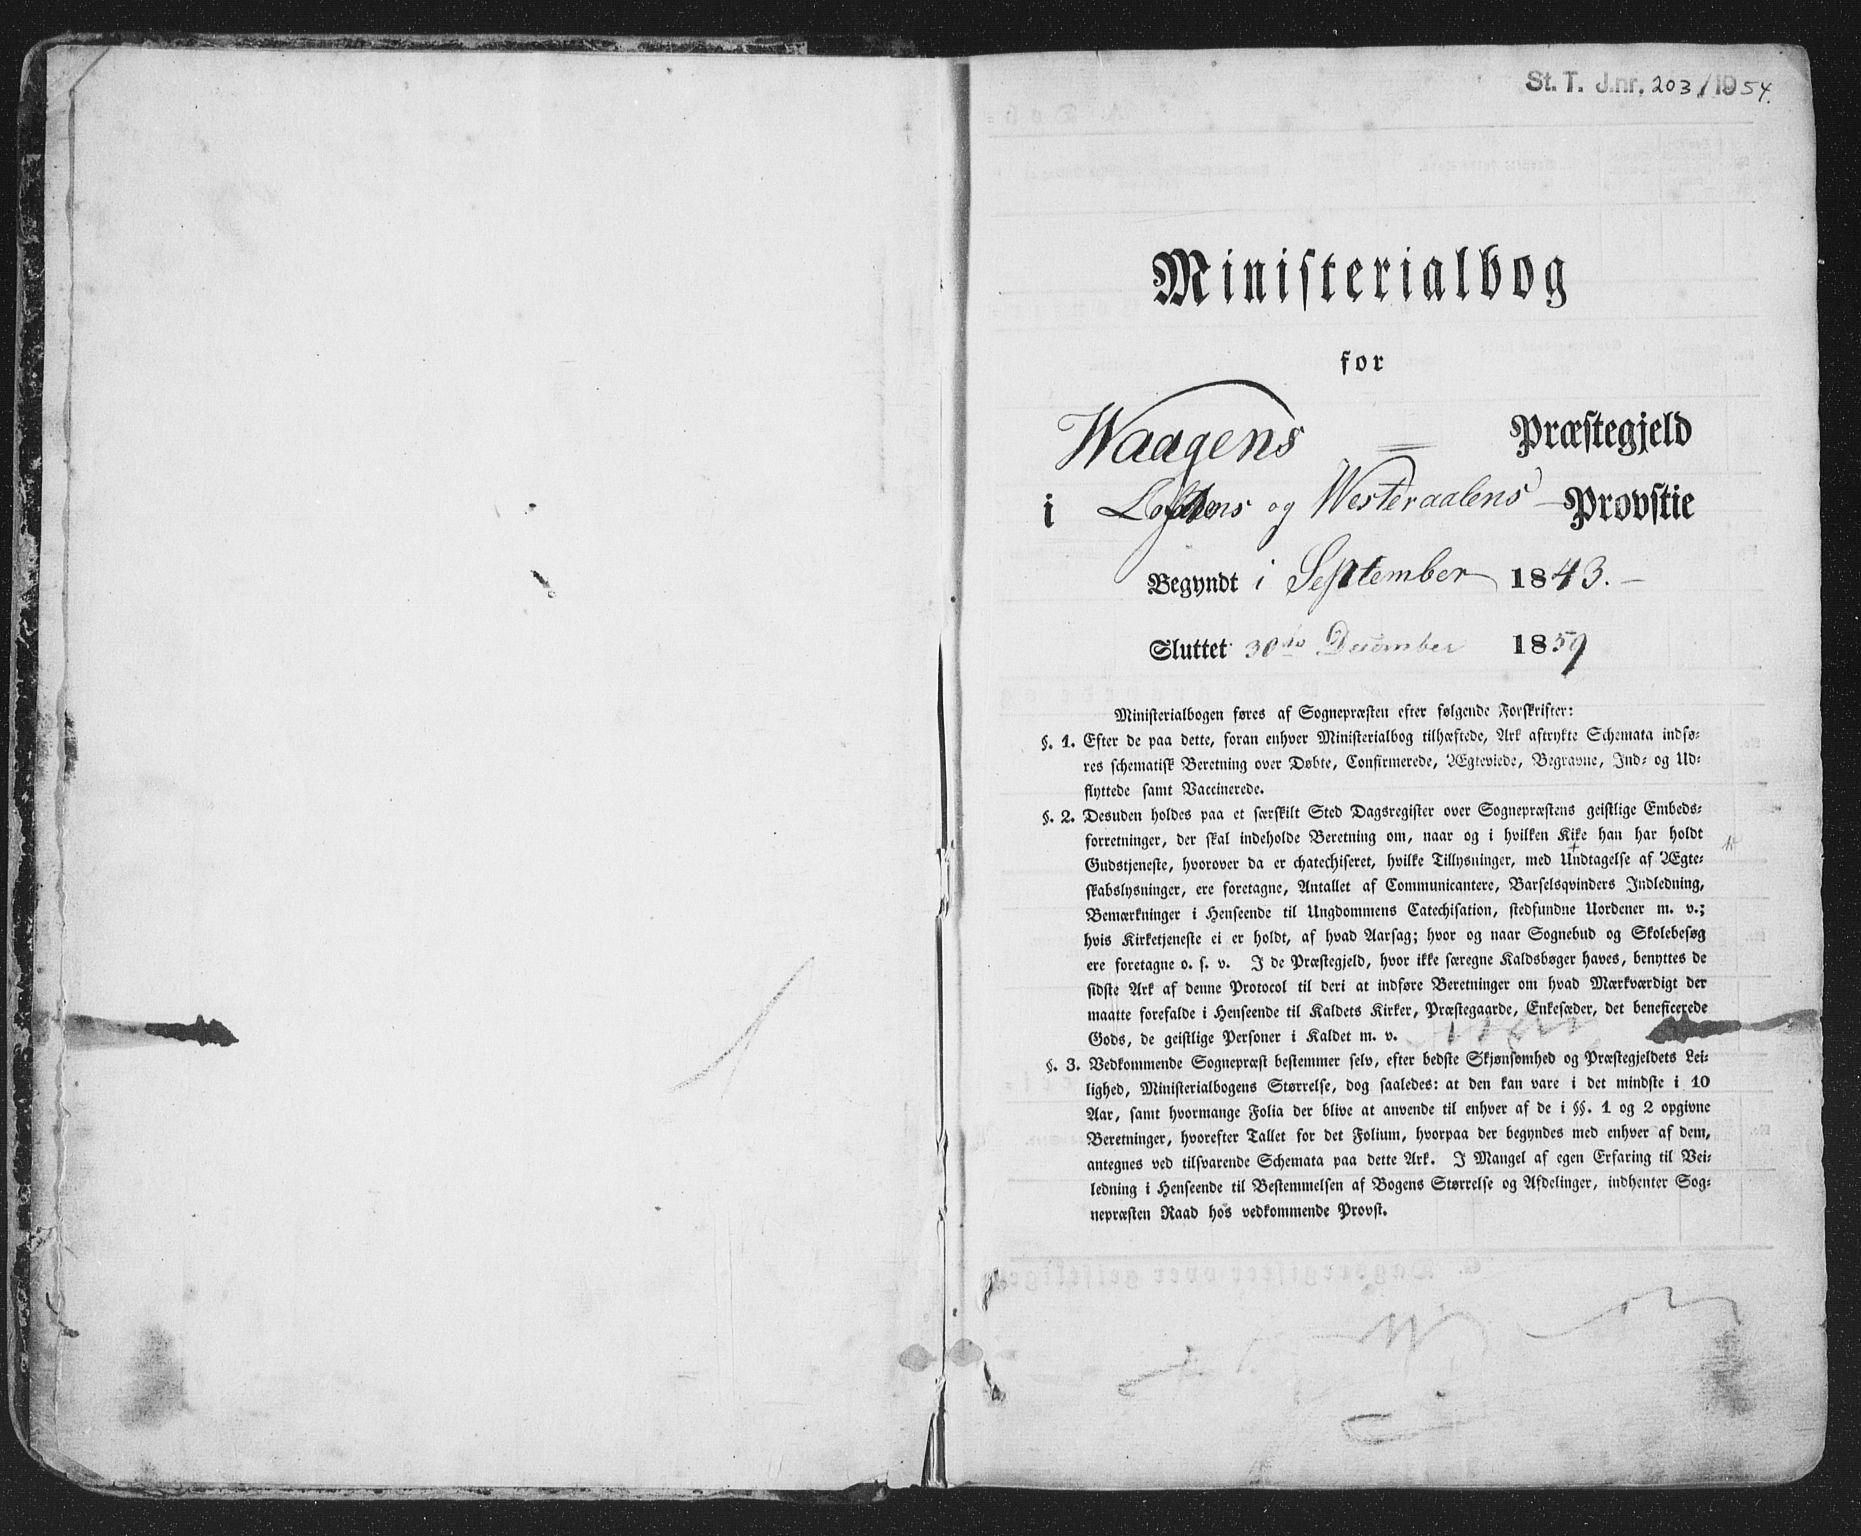 St. T. J.nr. 203/1954.
Ministerialbog
for
Waagens Præstegjeld
i Lofotens og Westeraalens Provstie
Begyndt i September 1843.
Sluttet 30de December 1859
Ministerialbogen føres af Sognepræsten efter følgende Forskrifter:
§. 1. Efter de paa dette, foran enhver Ministerialbog tilhæftede, Ark aftrykte Schemata indfø-
res schematisk Beretning over Døbte, Confirmerede, Ægteviede, Begravne, Ind- og Ud-
flyttede samt Vaccinerede.
§. 2. Desuden holdes paa et særskilt Sted Dagsregister over Sognepræstens geistlige Embeds-
forretninger, der skal indeholde Beretning om, naar og i hvilken Kike han har holdt
Gudstjeneste, hvorover da er chatechiseret, hvilke Tillysninger, med Undtagelse af Ægte-
skabslysninger, ere foretagne, Antallet af Communicantere, Barselsqvinders Indledning,
Bemærkninger i Henseende til Ungdommens Catechisation, stedfundne Uordener m. v.;
hvis Kirketjeneste ei er holdt, af hvad Aarsag; hvor og naar Sognebud og Skolebesøg
ere foretagne o. s. v. I de Præstegjeld, hvor ikke særegne Kaldsbøger haves, benyttes de
sidste Ark af denne Protocol til deri at indføre Beretninger om hvad Mærkværdigt der
maatte forefalde i Henseende til Kaldets Kirker, Præstegaarde, Enkesæder, det beneficerede
Gods, de geistlige Personer i Kaldet m. v.
§. 3. Vedkommende Sognepræst bestemmer selv, efter bedste Skjønsomhed og Præstegjeldets Lei-
lighed, Ministerialbogens Størrelse, dog saaledes: at den kan vare i det mindste i 10
Aar, samt hvormange Folia der blive at anvende til enhver af de i §§. 1 og 2 opgivne
Beretninger, hvorefter Tallet for det Folium, hvorpaa der begyndes med enhver af dem,
antegnes ved tilsvarende Schemata paa dette Ark. I Mangel af egen Erfaring til Vei-
ledning i Henseende til Bestemmelsen af Bogens Størrelse og Afdelinger, indhenter Sog-
nepræsten Raad hos vedkommende Provst.